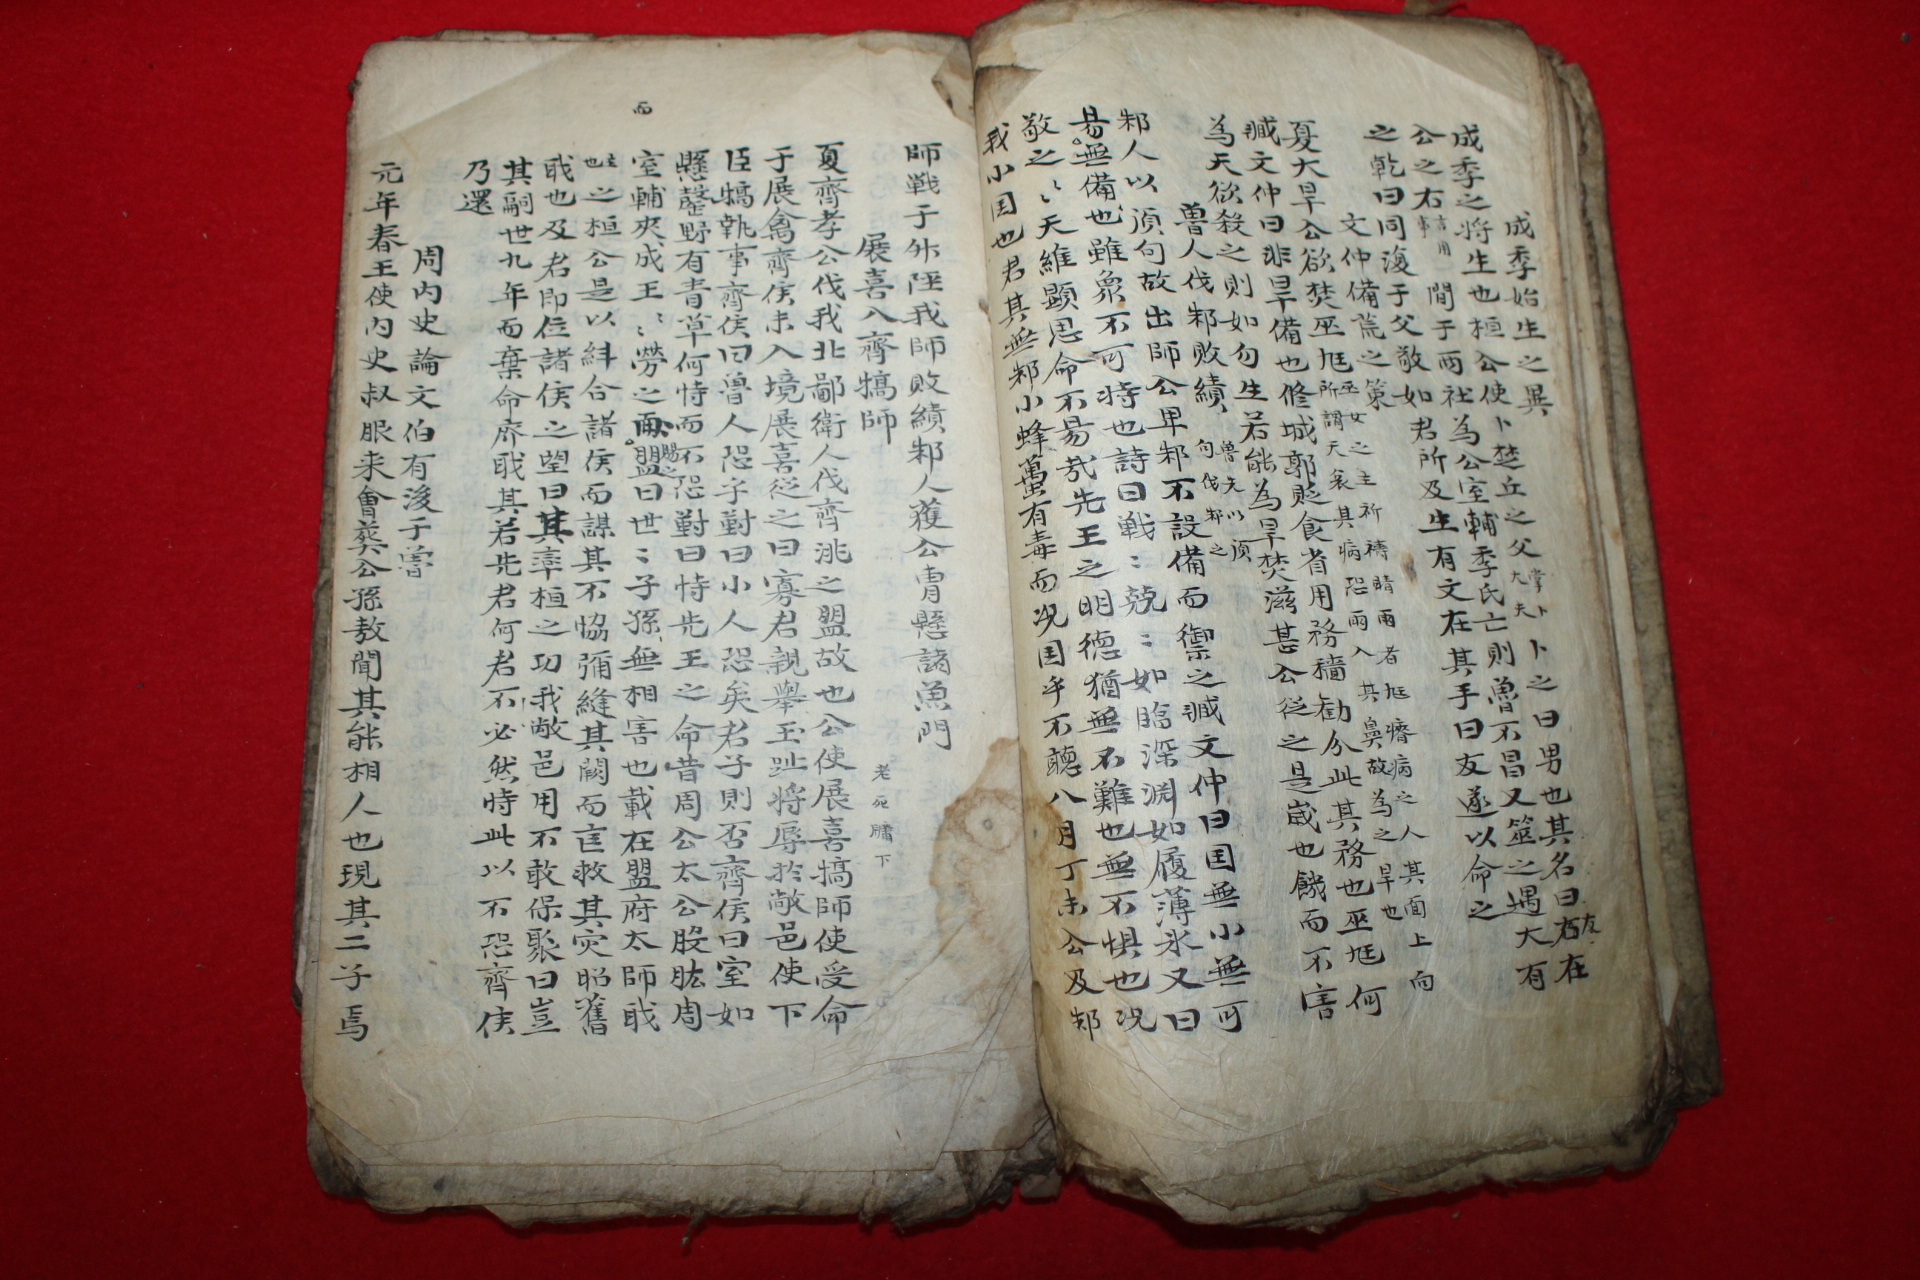 成季始生之異
成季之将生也桓公使卜楚丘之父掌卜大夫卜之曰男也其名曰友在
公之右言用事間于両社為公室輔季氏亡則魯不昌又筮之遇大有
之乾曰同復于父敬如君所及生有文在其手曰友遂以命之
文仲備荒之策
夏大旱公欲焚巫尫巫女之主祈禱晴雨者尫瘠病之人其面上向
所謂天哀其病恐雨入其鼻故為之旱也
臧文仲曰非旱備也修城郭貶食省用務穡勧分此其務也巫尫何
為天欲殺之則如勿生若能為旱焚滋甚公従之是歲也饑而不害
魯人伐邾敗績魯先以須句伐邾之
邾人以須句故出師公卑邾不設備而禦之臧文仲曰囯無小無可
易無備也雖衆不可恃也詩曰戦〻兢〻如臨深渊如履薄氷又曰
敬之〻〻天維顯思命不易㢤先王之明徳猶無不難也無不惧也况
我小囯也君其無邾小蜂蠆有毒而况囯乎不聽八月丁未公及邾
師戦于升陘我師敗績邾人獲公冑懸諸魚門
展喜八齊犒師
夏齊孝公伐我北鄙衛人伐齊洮之盟故也公使展喜犒師使受命
于展禽齊侯未入境展喜従之曰寡君親舉玉趾将辱於敝邑使下
臣犒執事齊侯曰魯人恐乎對曰小人恐矣君子則否齊侯曰室如
懸罄野有青草何恃而不恐對曰恃先王之命昔周公太公股肱周
室輔夾成王〻勞之而賜之盟曰世〻子孫無相害也載在盟府太師戠
也之桓公是以糾合諸侯而謀其不協彌縫其闕而匡救其灾昭舊
戠也及君即位諸侯之望曰其率桓之功我敝邑用不敢保聚曰豈
其嗣世九年而棄命廃戠其若先君何君不必然恃此以不恐齊侯
乃還
周内史論文伯有後于魯
元年春王使内史叔服来會葬公孫敖聞其能相人也現其二子焉
而